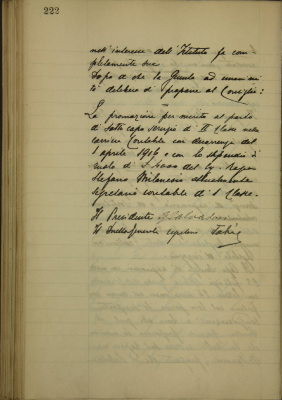 222
nell'interesse dell'Istituto fa com
pletamente sue
Dopo di che la Giunta ad unanimi
tà delibera di proporre al Consiglio:
La promozione per merito al posto
di Sotto capo servizio di II Classe nella
carriera Contabile con decorrenza dal
1 aprile 1916 e con lo stipendio
di L. del Rag.
Stefano attualmente
Segretario contabile di 1 Classe.
Il Presidente
Il